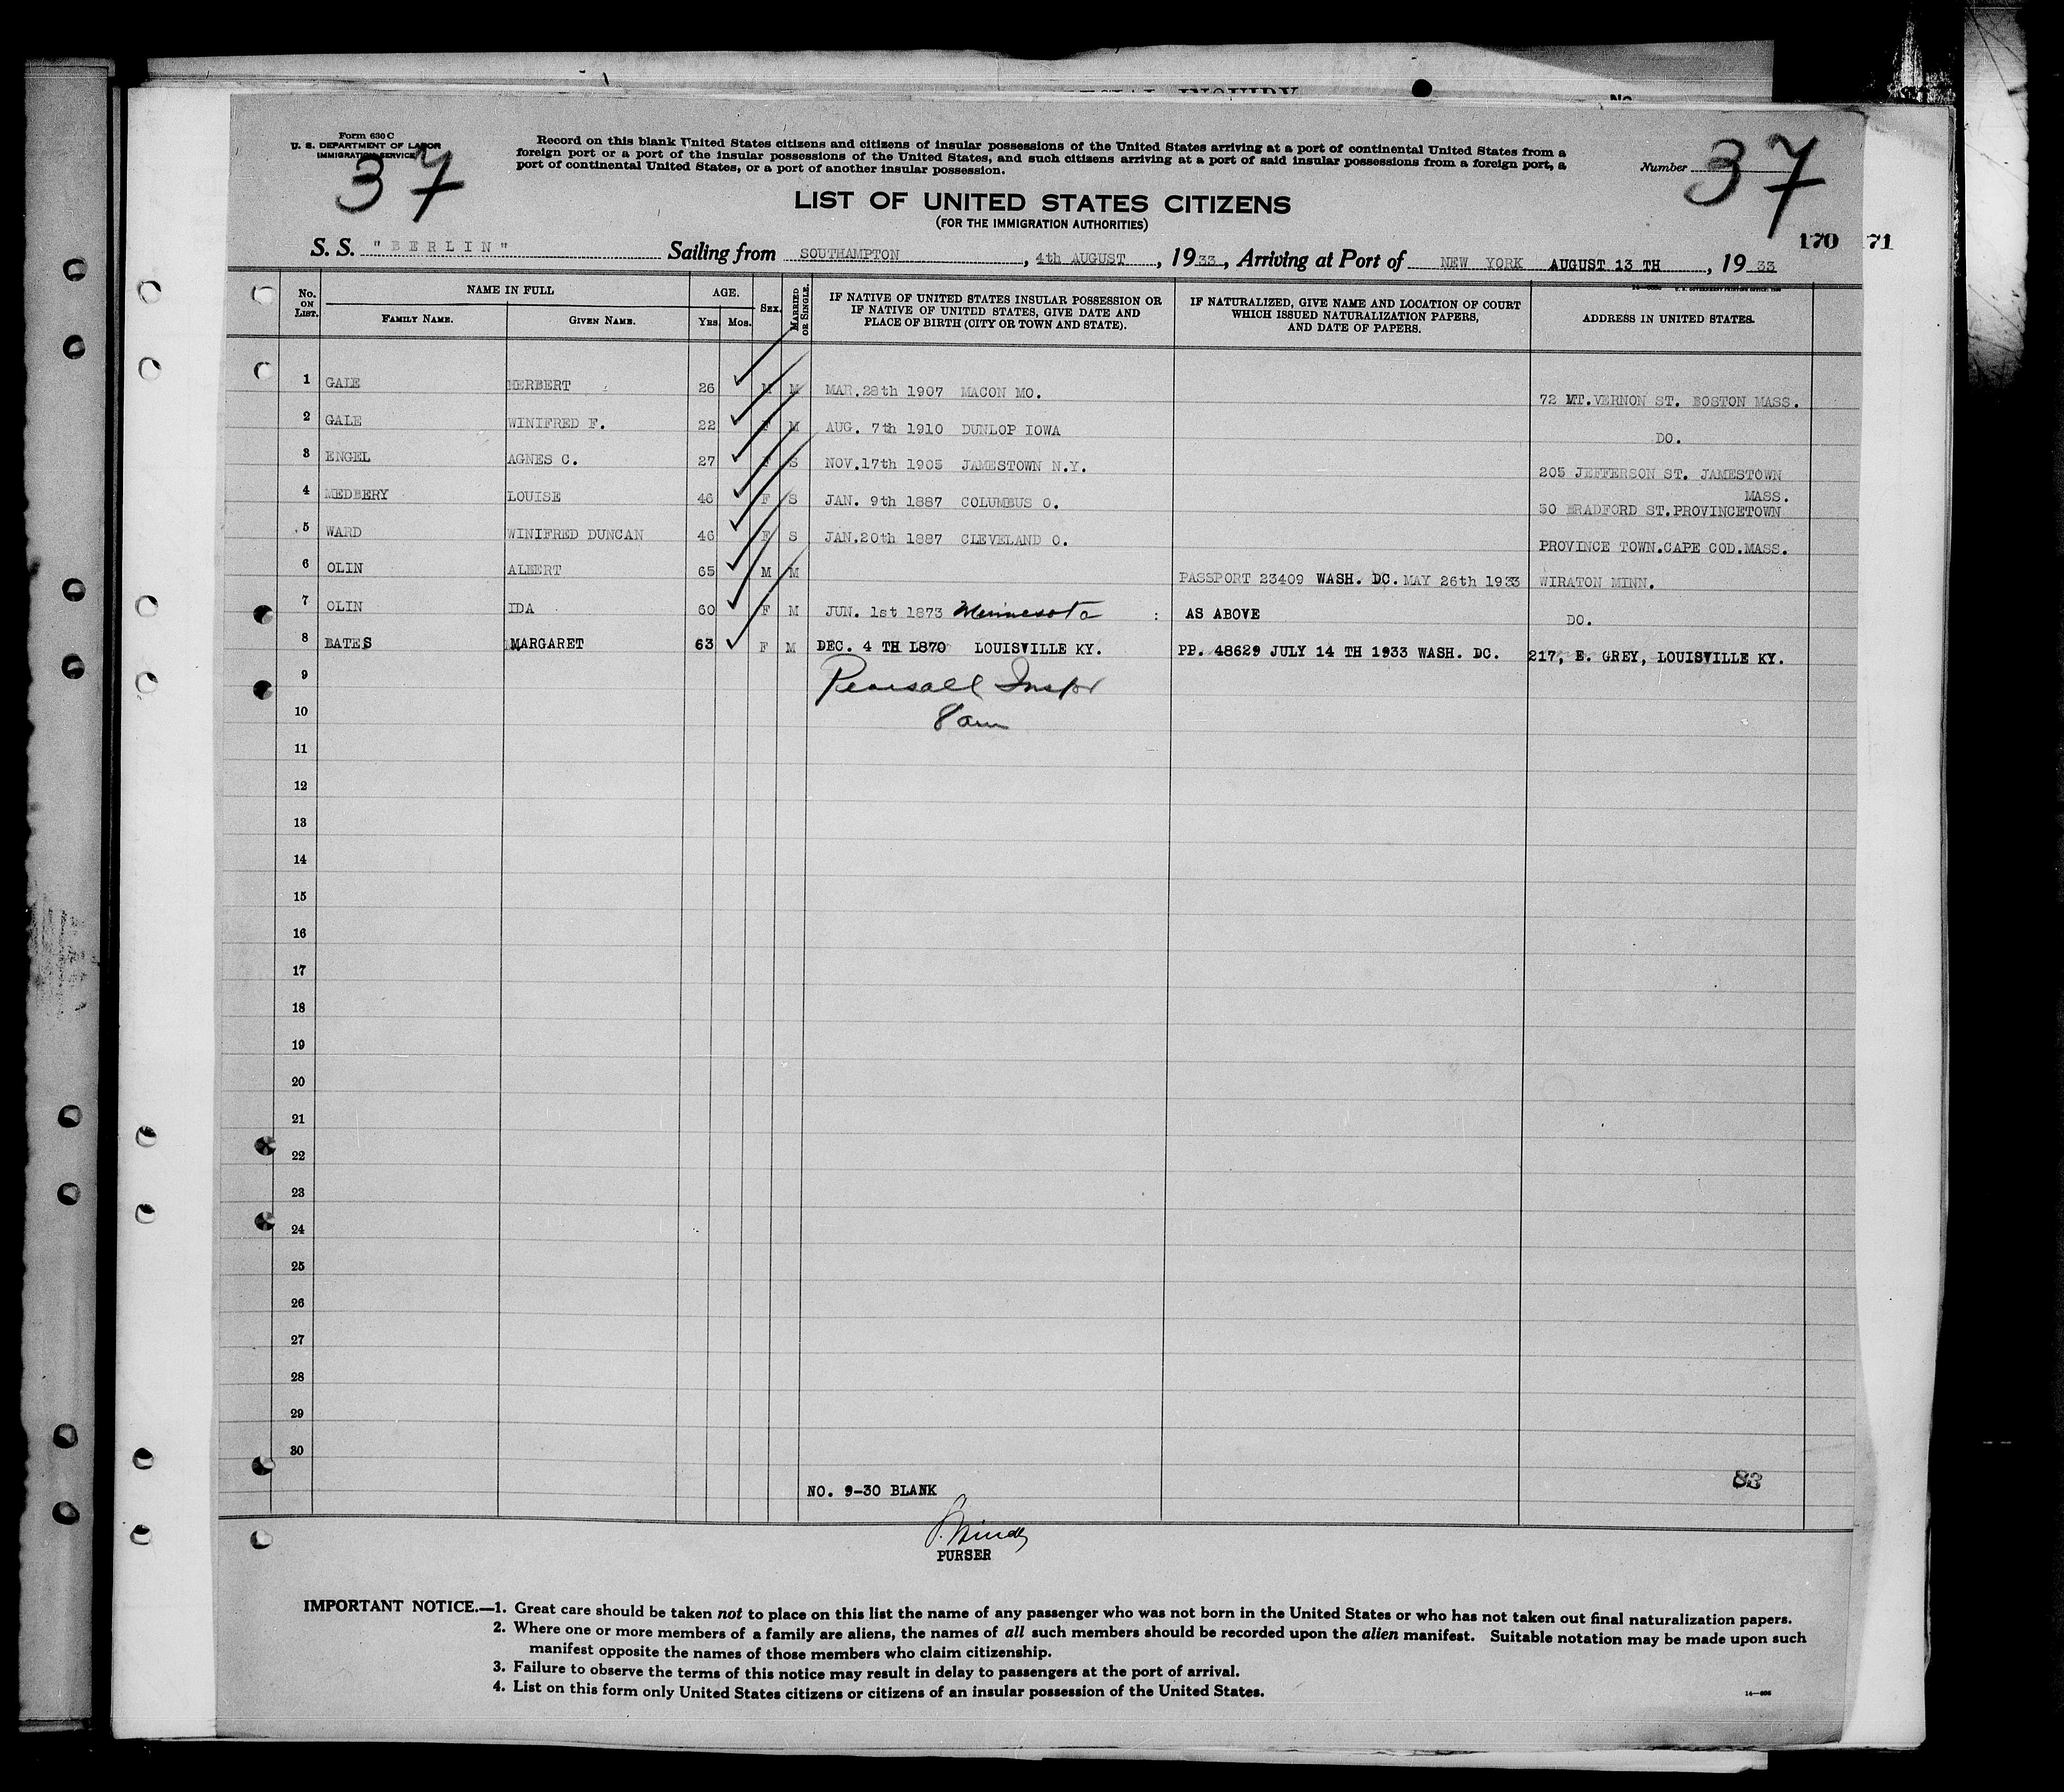 SPECIAL INQUIRY
No
Form 630 C
U. S. DEPARTMENT OF LABOR
IMMIGRATION SERVICE
37
Record on this blank United States citizens and citizens of insular possessions of the United States arriving at a port of continental United States from a
foreign port or a port of the insular possessions of the United States, and such citizens arriving at a port of said insular possessions from a foreign port, a
port of continental United States, or a port of another insular possession.
Number 37
LIST OF UNITED STATES CITIZENS
(FOR THE IMMIGRATION AUTHORITIES)
170 71
S. S. "BERLIN" Sailing from SOUTHAMPTON, 4th AUGUST, 1933, Arriving at Port of NEW YORK AUGUST 13 TH, 1933
No. ON LIST. NAME IN FULL FAMILY NAME. GIVEN NAME. AGE. YRS. MOS. SEX. MARRIED OR SINGLE. IF NATIVE OF UNITED STATES INSULAR POSSESSION OR IF NATIVE OF UNITED STATES, GIVE DATE AND PLACE OF BIRTH (CITY OR TOWN AND STATE). IF NATURALIZED, GIVE NAME AND LOCATION OF COURT WHICH ISSUED NATURALIZATION PAPERS, AND DATE OF PAPERS. ADDRESS IN UNITED STATES.
1 GALE HERBERT 26 M M MAR.28th 1907 MACON MO. 72 MT.VERNON ST. BOSTON MASS.
2 GALE WINIFRED F. 22 F M AUG. 7th 1910 DUNLOP IOWA DO.
3 ENGEL AGNES C. 27 F S NOV.17th 1905 JAMESTOWN N.Y. 205 JEFFERSON ST. JAMESTOWN
4 MEDBERY LOUISE 46 F S JAN. 9th 1887 COLUMBUS O. MASS. 50 BRADFORD ST.PROVINCETOWN
5 WARD WINIFRED DUNCAN 46 F S JAN.20th 1887 CLEVELAND O. PROVINCE TOWN.CAPE COD.MASS.
6 OLIN ALBERT 65 M M PASSPORT 23409 WASH. DC. MAY 26th 1933 WIRATON MINN.
7 OLIN IDA 60 F M JUN. 1st 1873 Minnesota : AS ABOVE DO.
8 BATES MARGARET 63 F M DEC. 4 TH 1870 LOUISVILLE KY. PP. 48629 JULY 14 TH 1933 WASH. DC. 217, E. GREY, LOUISVILLE KY.
9 Pearsall Inspr
10 8 am
11
12
13
14
15
16
17
18
19
20
21
22
23
24
25
26
27
28
29
30
83
NO. 9-30 BLANK
PURSER
IMPORTANT NOTICE.—1. Great care should be taken not to place on this list the name of any passenger who was not born in the United States or who has not taken out final naturalization papers.
2. Where one or more members of a family are aliens, the names of all such members should be recorded upon the alien manifest. Suitable notation may be made upon such
manifest opposite the names of those members who claim citizenship.
3. Failure to observe the terms of this notice may result in delay to passengers at the port of arrival.
4. List on this form only United States citizens or citizens of an insular possession of the United States.